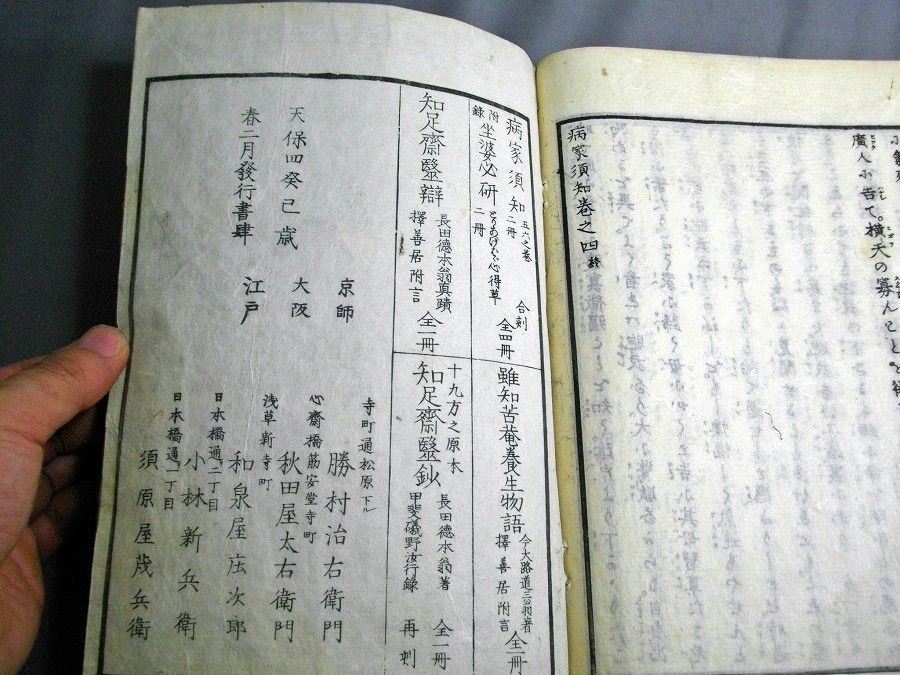 廣人小告て。横天の寡んヿと
病家須知巻之四終
病家須知 五六之巻二冊
附録 坐婆必研 とりあげばゝ心得草 二冊
合刻 全四冊
雖知苦菴養生物語 今大路道三翁著 擇善居附言 全一冊
知足齋毉辯 長田德本翁真蹟 擇善居附言 全一冊
十九方之原本
知足齋毉鈔 長田德本翁著 甲斐磯野汝行錄 全一冊 再刺
天保四癸巳歳
春二月發行書肆
京師 寺町通松原下ル 勝村治右衛門
大阪 心齋橋筋安堂寺町 秋田屋太右衛門
江戸 浅草新寺町 和泉屋庄次郎
日本橋通二丁目 小林新兵衛
日本橋通一丁目 須原屋茂兵衛